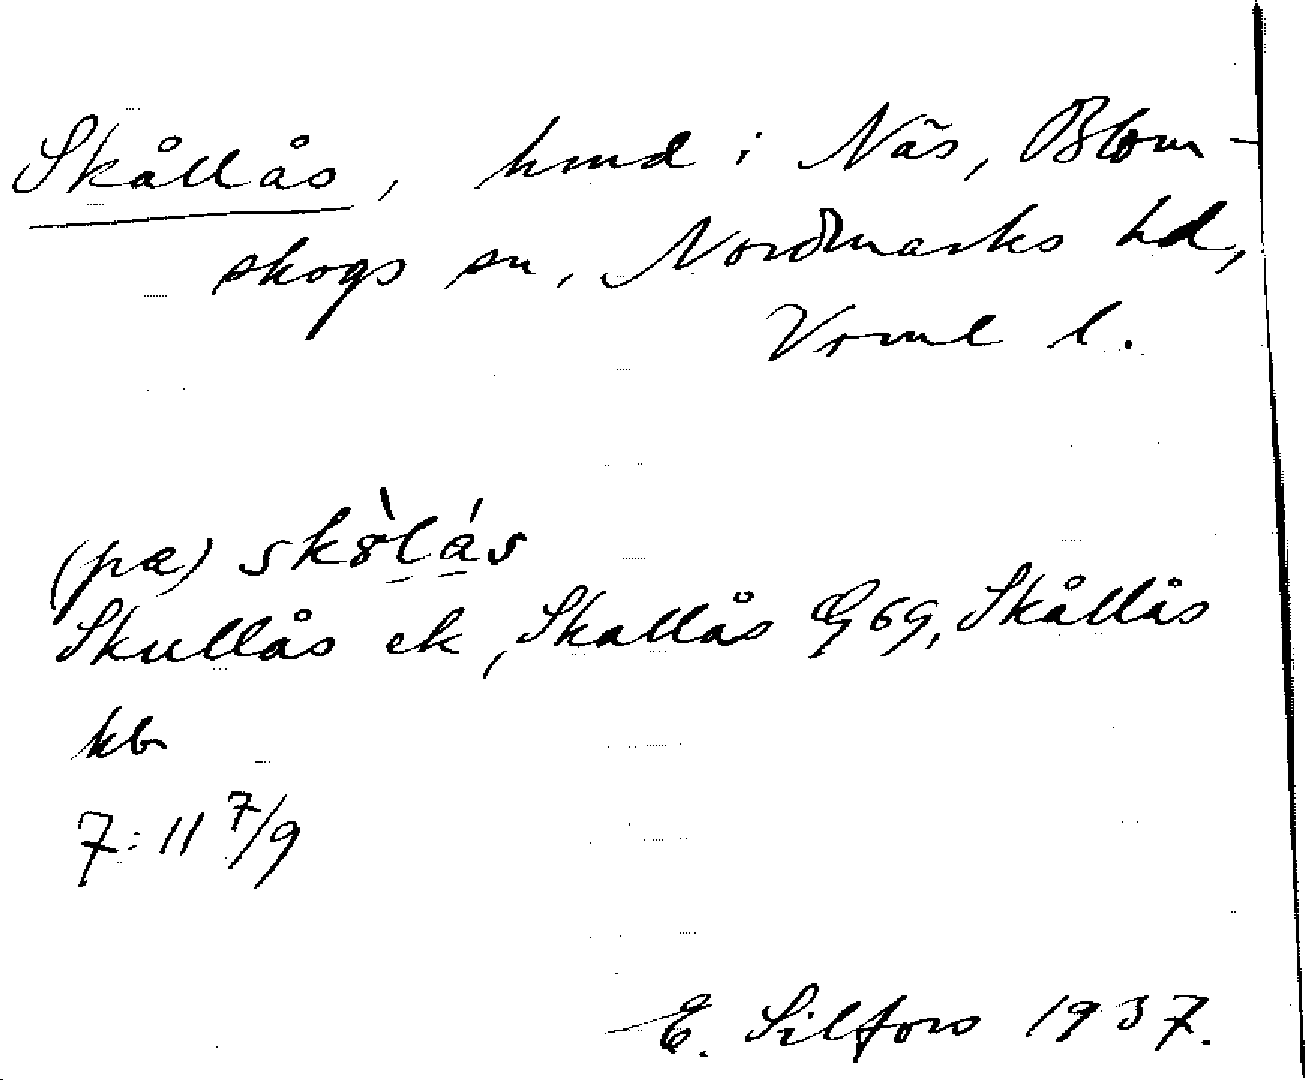 Skållås, hmd i Näs, Blom-
skogs sn, Nordmarks hd,
Vrml l.
(pα) skòlás
Skullås ek, Skallås G 69, Skållås
kb
7:11 7/9
E. Silfors 1937.